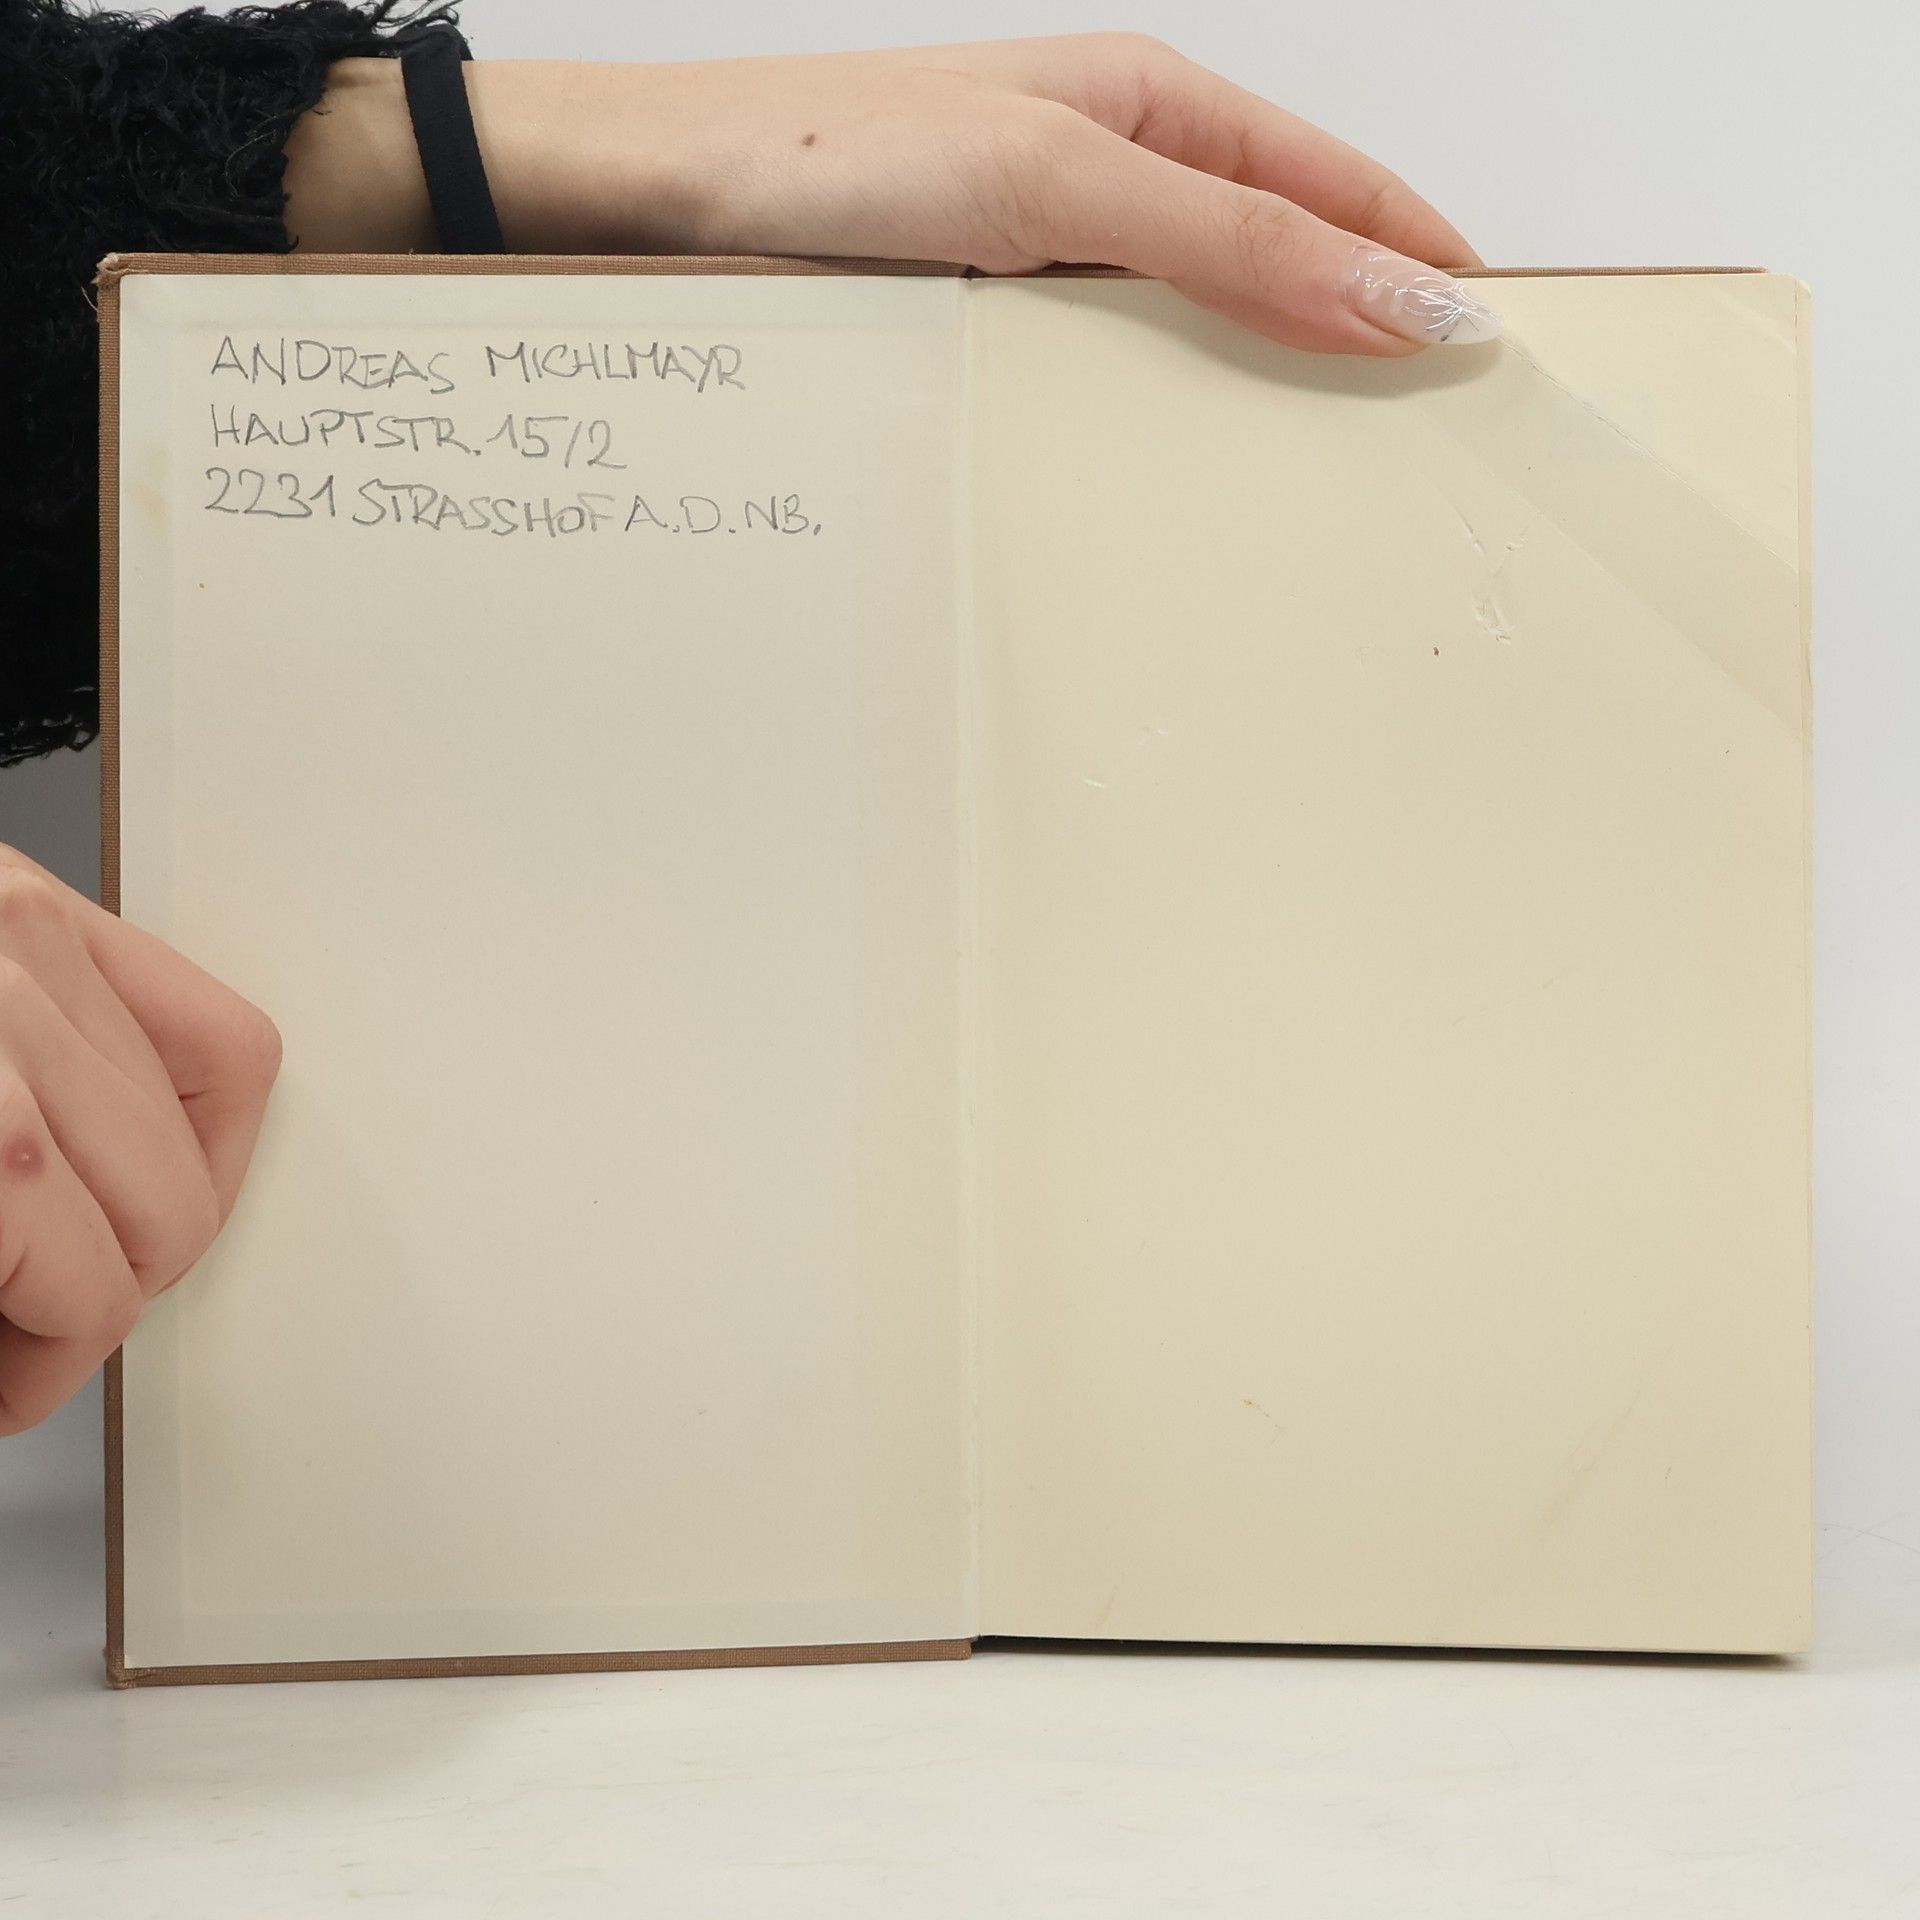 ANDREAS MICHLMAYR
HAUPTSTR. 15/2
2231 STRASSHOF A.D. NB.